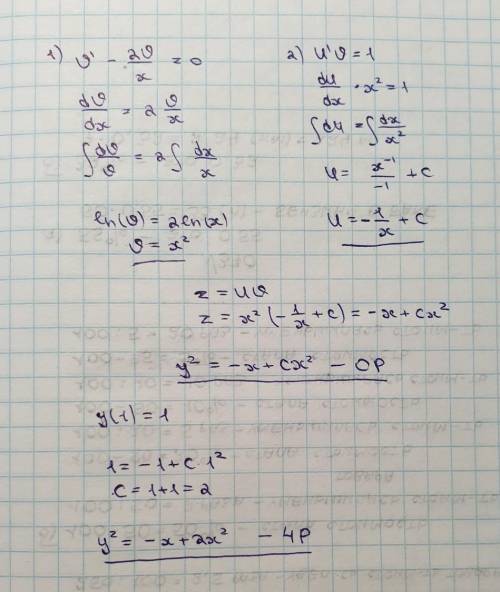 1) υ' - 2υ/x = 0
dυ/dx = 2 υ/x
∫ dυ/υ = 2 ∫ dx/x
ln(υ) = 2ln(x)
υ = x²
2) u'υ = 1
du/dx · x² = 1
∫ du = ∫ dx/x²
u = x⁻¹/-1 + c
u = - 1/x + c
z = uυ
z = x² (- 1/x + c) = -x + cx²
y² = -x + cx² - ОР
y(1) = 1
1 = -1 + c 1²
c = 1+1 = 2
y² = -x + 2x² - ЧР